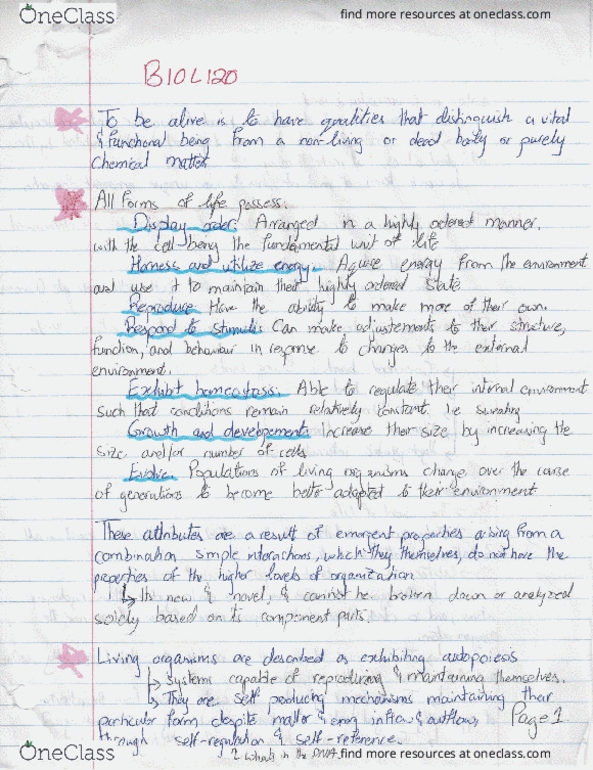 OneClass
find more resources at oneclass.com
BIOL120
To be alive is to have qualities that distinguish a vital
& functional being from a non-living or dead body or purely
chemical matter
All forms of life possess:
Display order: Arranged in a highly ordered manner,
with the cell being the fundamental unit of life
Harness and utilize energy: Aquire energy from the environment
and use it to maintain their highly ordered state
Reproduce: Have the ability to make more of their own.
Respond to Stimuli: Can make adjustements to their structure,
function, and behaviour in response to changes to the external
environment.
Exhibt homeostasis: Able to regulate their internal environment
such that conditions remain relatively constant. ie sweating
Growth and developement: Increase their size by increasing the
size and/or number of cells
Evolve: Populations of living organisms change over the course
of generations to become better adapted to their environment
These attributes are a result of emergent properties arising from a
combination simple interactions, which they themselves, do not have the
properties of the higher levels of organization
↳ Its new & novel, & cannot be broken down or analyzed
solely based on its component parts.
Living organisms are described as exhibiting autopoiesis
↳ Systems capable of reproducing & maintaining themselves.
↳ They are self producing mechanisms maintaining their
particular form despite matter & energ inflow & outflow,
Page 1
through self-regulation & self-reference.
OneClass
↳ whats in the DNA
find more resources at oneclass.com